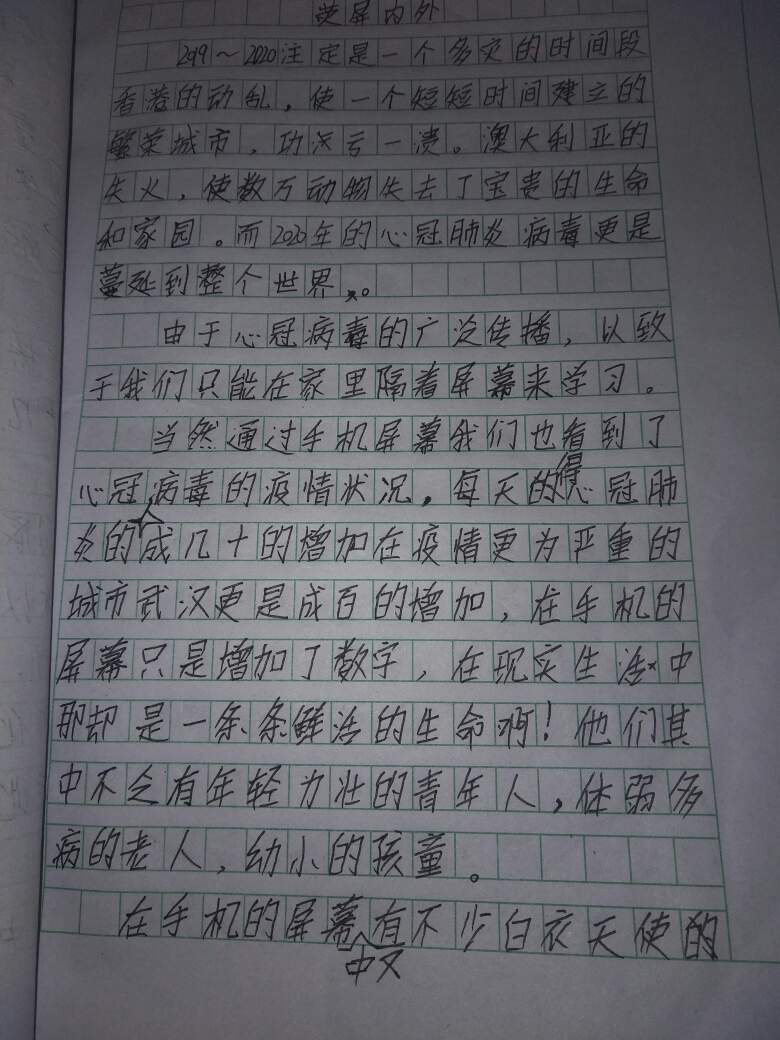 荧屏内外
2019～2020注定是一个多灾的时间段
香港的动乱，使一个短短时间建立的
繁荣城市，功亏一溃。澳大利亚的
失火，使数万动物失去了宝贵的生命
和家园。而2020年的心冠肺炎病毒更是
蔓延到整个世界。
由于心冠病毒的广泛传播，以致
于我们只能在家里隔着屏幕来学习。
当然通过手机屏幕我们也看到了
心冠病毒的疫情状况，每天的得心冠肺
炎的人成几十的增加在疫情更为严重的
城市武汉更是成百的增加，在手机的
屏幕只是增加了数字，在现实生活中
那却是一条条鲜活的生命啊！他们其
中不乏有年轻力壮的青年人，体弱多
病的老人，幼小的孩童。
在手机的屏幕中又有不少白衣天使的